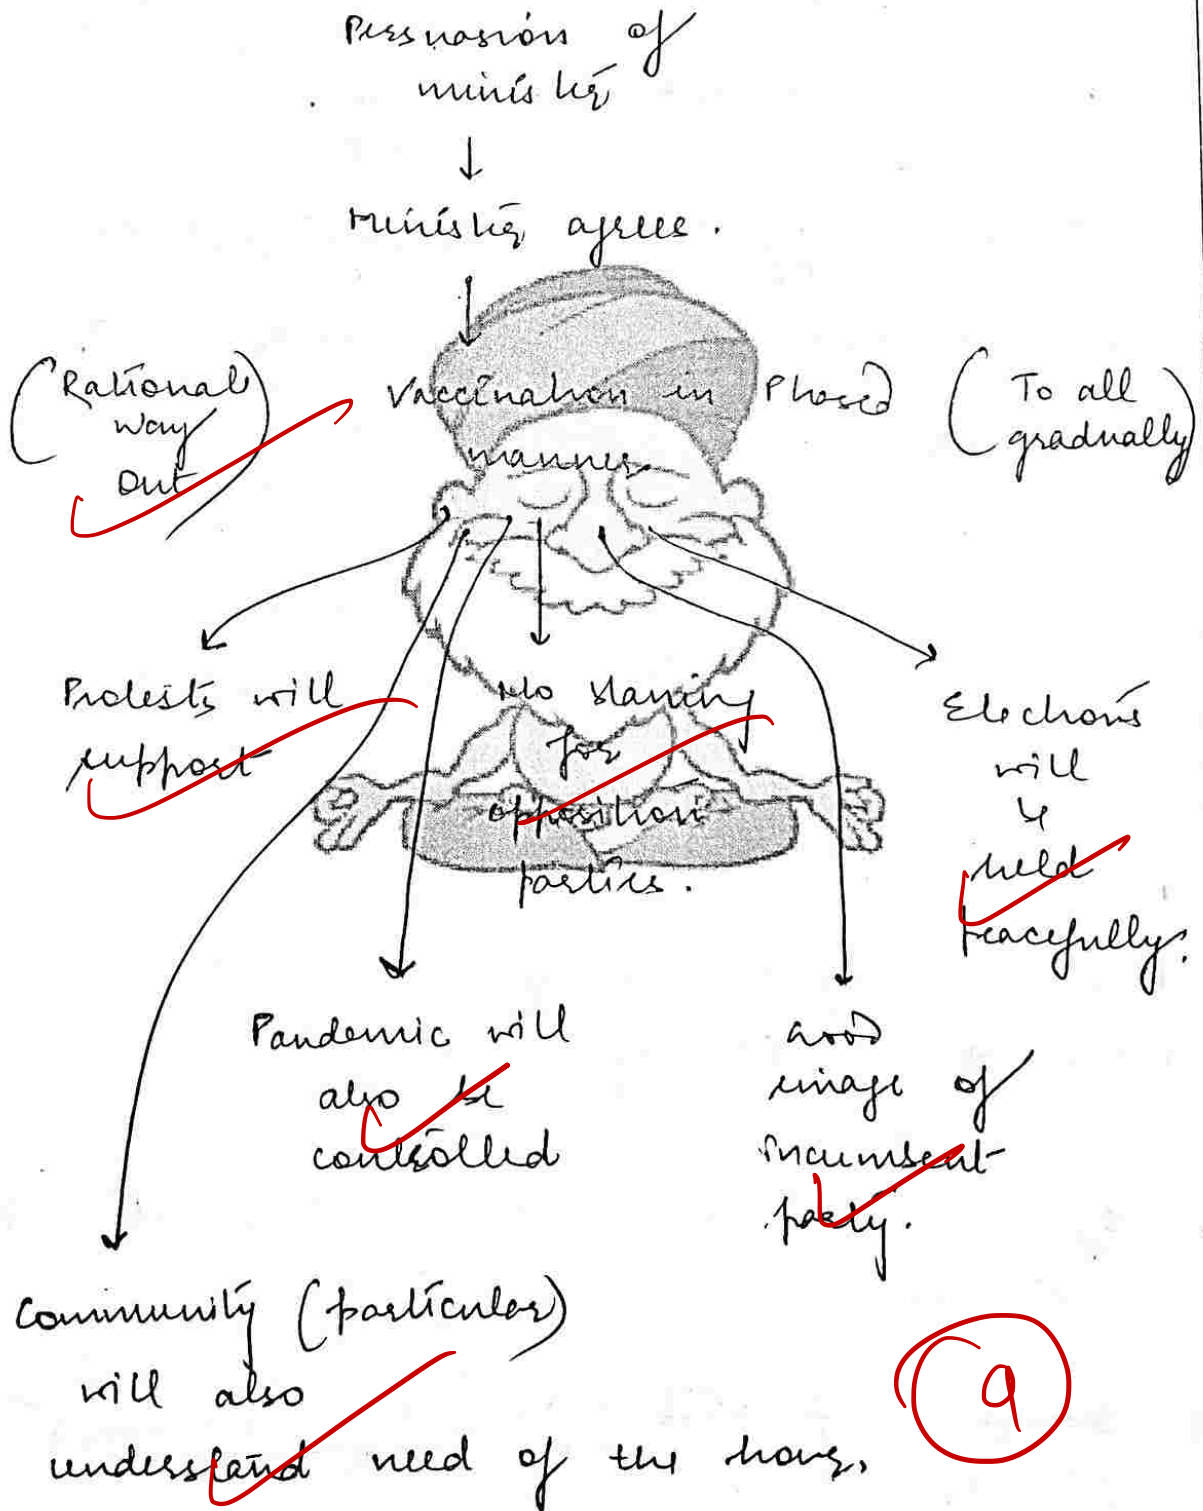 Persuasion of
minister
Minister agrees.
(Rational
way
out)
Vaccination in Phased
manner
(To all
gradually)
Protests will
support
No
for
opposition
parties.
Elections
will
be
held
peacefully.
Pandemic will
also be
controlled
Good
image of
incumbent
party.
Community (particular)
will also
understand need of the hour.
9